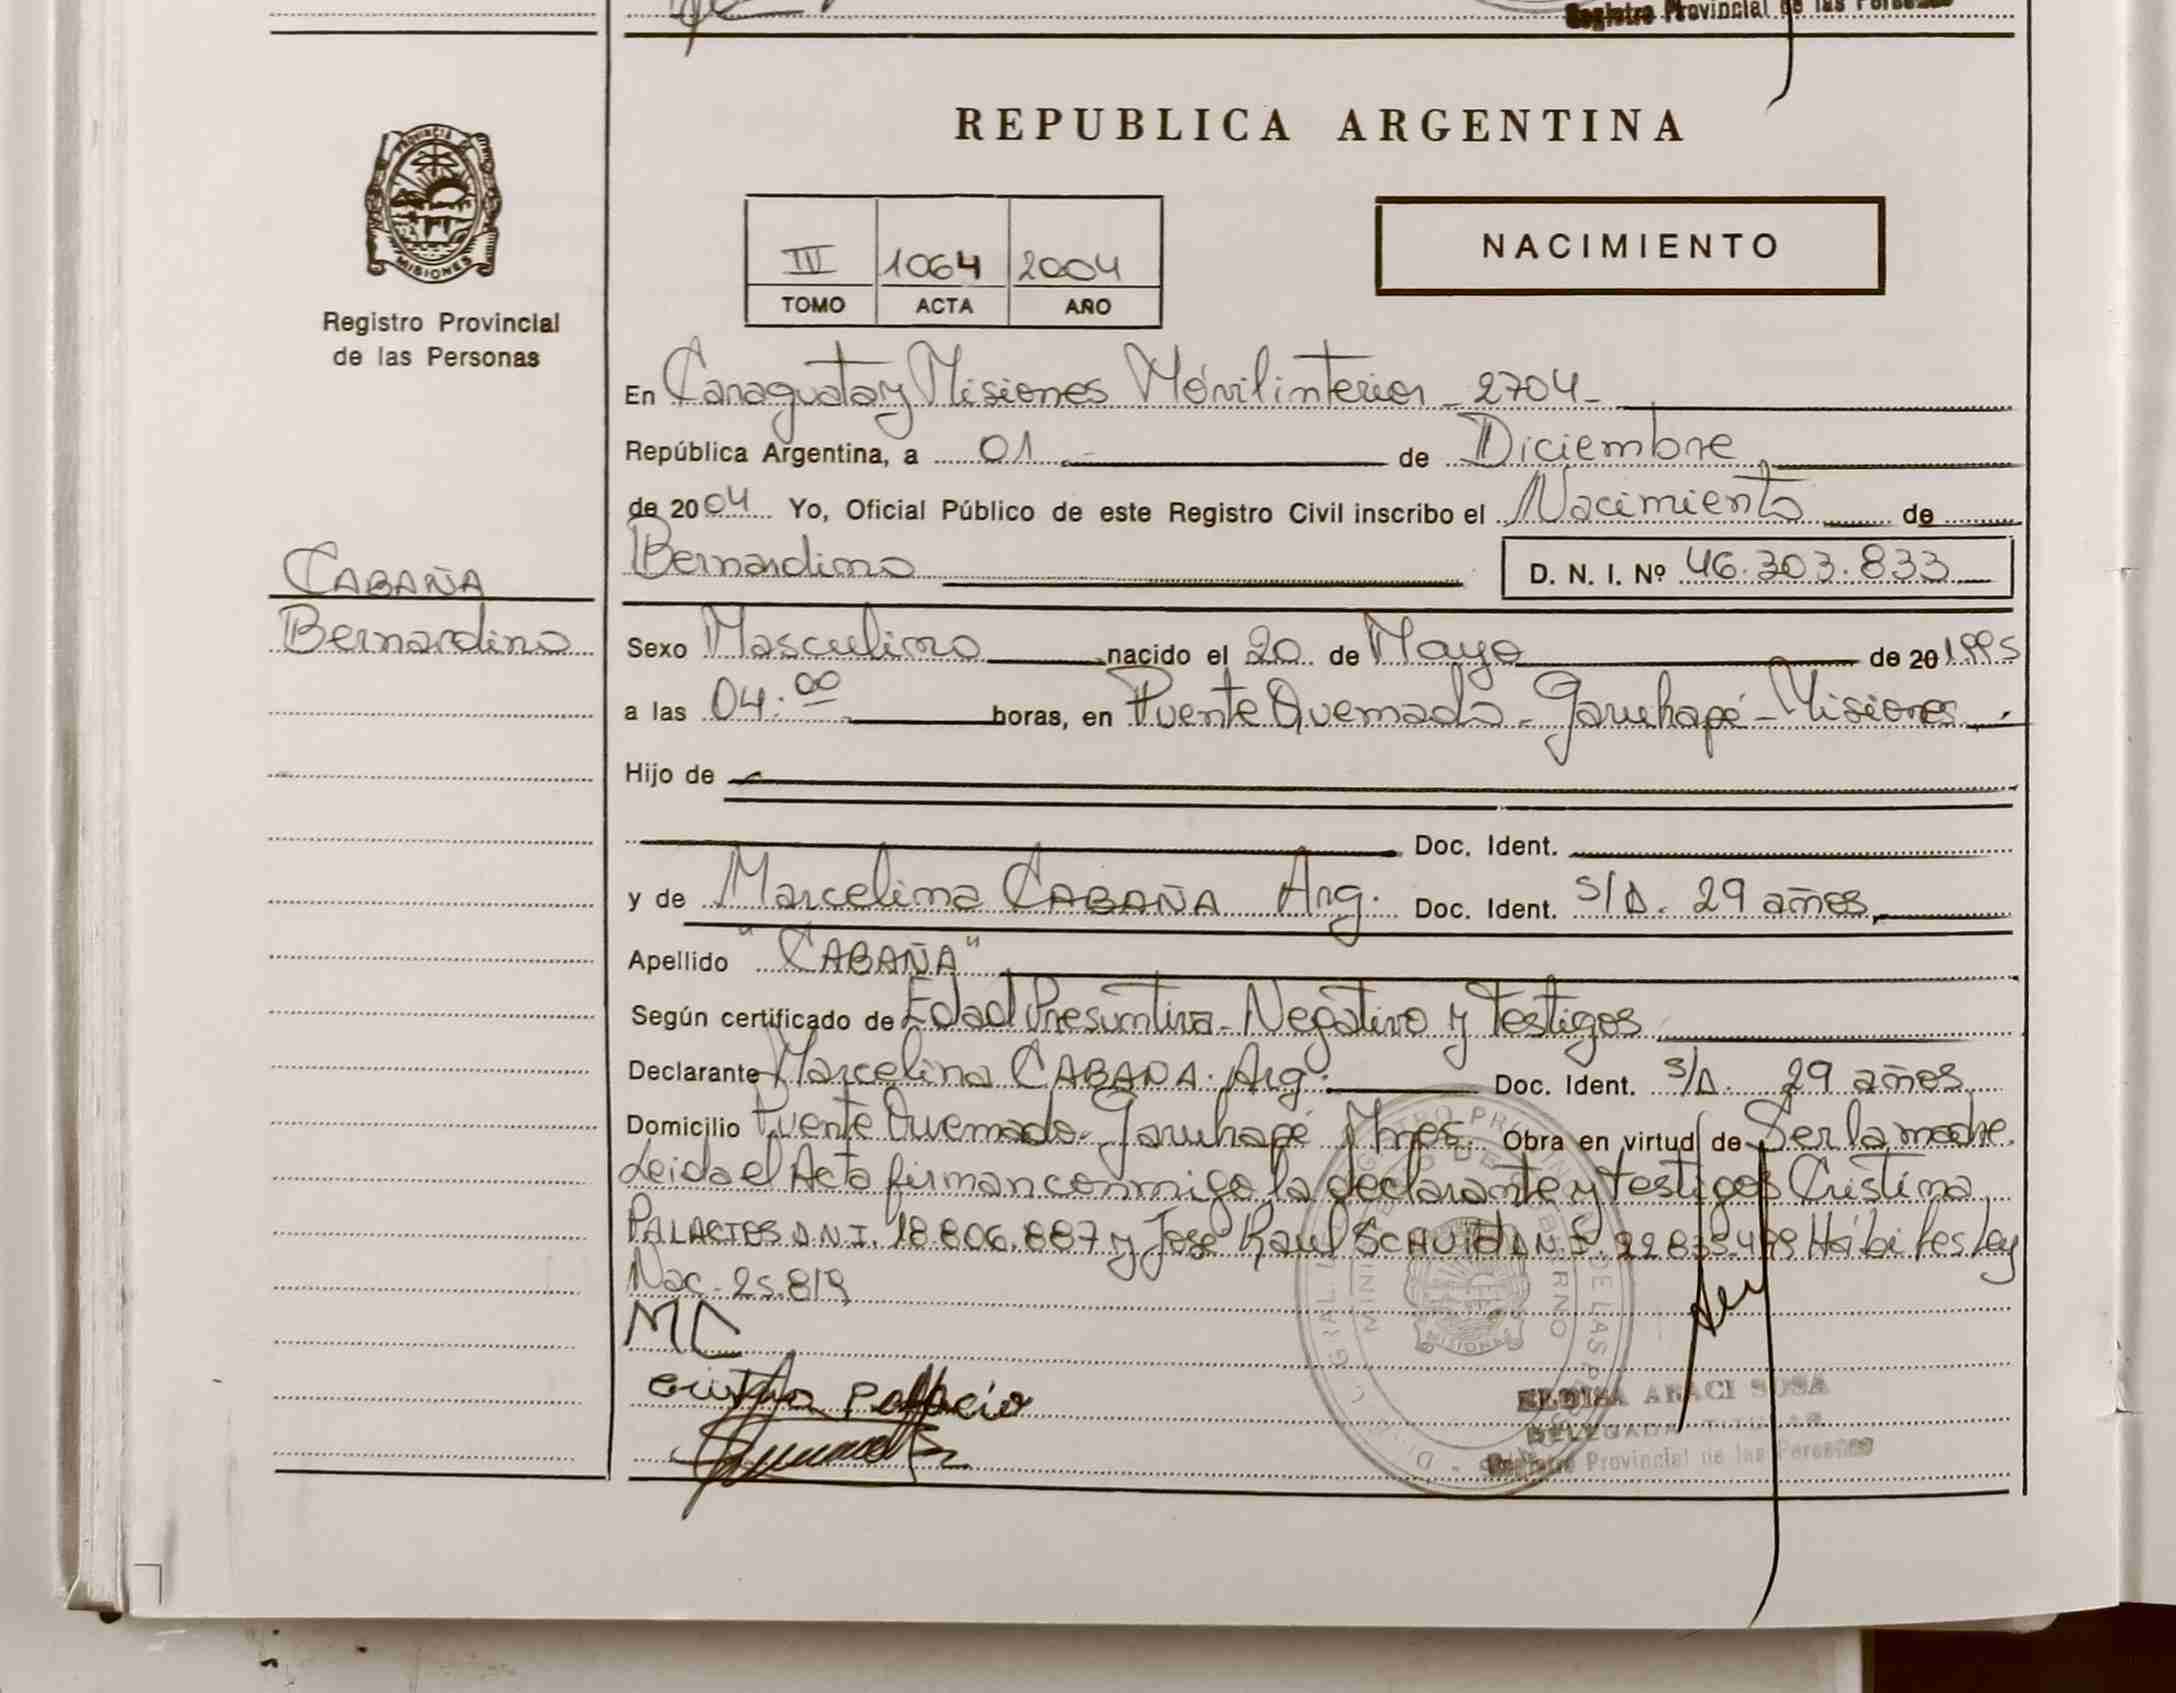 Registro Provincial de las Personas
REPUBLICA ARGENTINA
PROVINCIA DE
MISIONES
Registro Provincial
de las Personas
III 1064 2004
TOMO ACTA AÑO
NACIMIENTO
En Caraguatay Misiones Móvil interior - 2704 -
República Argentina, a 01.- de Diciembre
de 2004 Yo, Oficial Público de este Registro Civil inscribo el Nacimiento de
Bernardino D. N. I. Nº 46.303.833
CABAÑA
Bernardino
Sexo Masculino nacido el 20 de Mayo de 20 1995
a las 04:00 horas, en Puente Quemado - Garuhapé - Misiones
Hijo de
Doc. Ident.
y de Marcelina CABAÑA Arg. Doc. Ident. S/D. 29 años
Apellido "CABAÑA"
Según certificado de Edad Presuntiva - Negativo y Testigos
Declarante Marcelina CABAÑA. Arg. Doc. Ident. S/D. 29 años
Domicilio Puente Quemado - Garuhapé Mnes. Obra en virtud de Ser la madre.
Leida el Acta firman conmigo la declarante y testigos Cristina
PALACIOS D.N.I. 18.806.887 y José Raul D.N.I. Hábiles Ley
Nac. 25.819
MC
ELOISA ARACI SOSA
DELEGADA TITULAR
Registro Provincial de las Personas